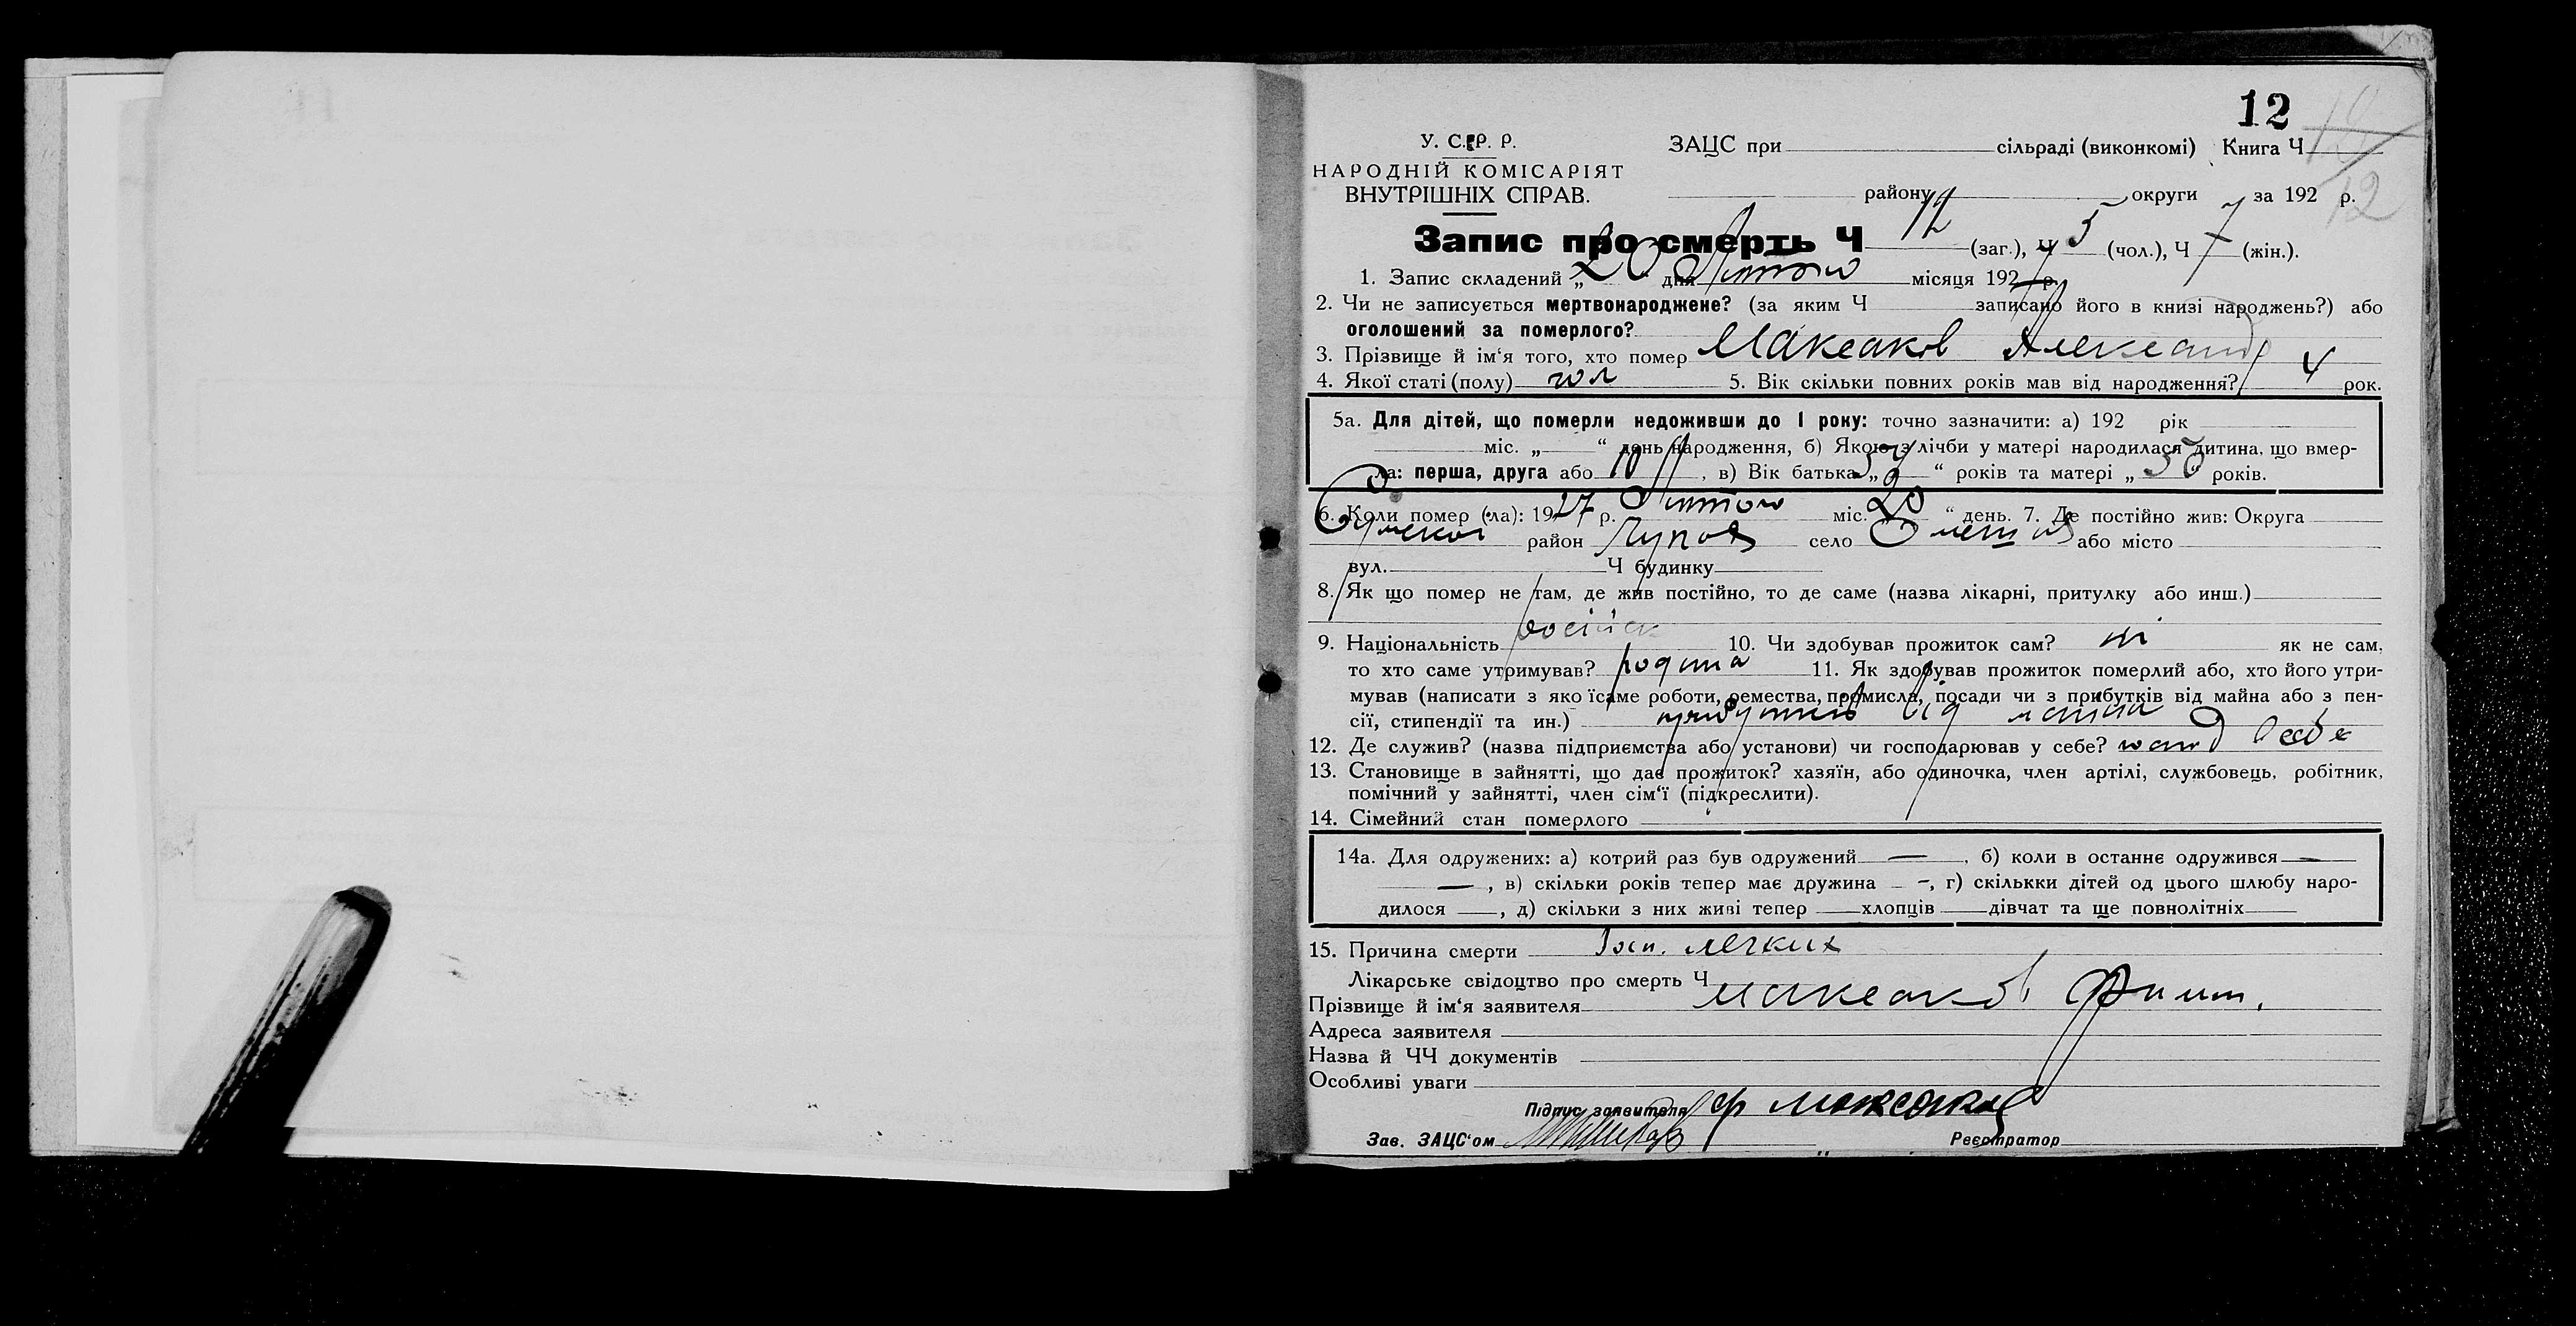 12
У. С. Р. Р. ЗАЦС при сільраді (виконкомі) Книга Ч
НАРОДНІЙ КОМІСАРІЯТ
ВНУТРІШНІХ СПРАВ. району округи за 192 р.
12
Запис про смерть Ч 12 (заг.), Ч 5 (чол.), Ч 7 (жін.).
1. Запис складений „20 дня Лютого місяця 1927 р.
2. Чи не записується мертвонароджене? (за яким Ч записано його в книзі народжень?) або
оголошений за померлого?
3. Прізвище й ім‘я того, хто помер Максаков Александр
4. Якої статі (полу) чол 5. Вік скільки повних років мав від народження? 4 рок.
5а. Для дітей, що померли недоживши до 1 року: точно зазначити: а) 192 рік
міс. „ “ день народження, б) Якою з лічби у матері народилася дитина, що вмер-
ла: перша, друга або 10 , в) Вік батька „ “ років та матері „50“ років.
6. Коли помер (ла): 1927 р. Лютого міс. 20 “ день. 7. Де постійно жив: Округа
Сумської район село або місто
вул. Ч будинку
8. Як що помер не там, де жив постійно, то де саме (назва лікарні, притулку або инш.)
9. Національність 10. Чи здобував прожиток сам? ні як не сам,
то хто саме утримував? родина 11. Як здобував прожиток померлий або, хто його утри-
мував (написати з яко їсаме роботи, ремества, промисла, посади чи з прибутків від майна або з пен-
сії, стипендії та ин.) прибутків від майна
12. Де служив? (назва підприємства або установи) чи господарював у себе?
13. Становище в зайнятті, що дає прожиток? хазяїн, або одиночка, член артілі, службовець, робітник,
помічний у зайнятті, член сім‘ї (підкреслити).
14. Сімейний стан померлого
14а. Для одружених: а) котрий раз був одружений — , б) коли в останнє одружився —
— , в) скільки років тепер має дружина —, г) скількки дітей од цього шлюбу наро-
дилося , д) скільки з них живі тепер хлопців дівчат та ще повнолітніх
15. Причина смерти легких
Лікарське свідоцтво про смерть Ч
Прізвище й ім‘я заявителя Максаков
Адреса заявителя
Назва й ЧЧ документів
Особливі уваги
Підпис заявителя Ф Максаков
Зав. ЗАЦС‘ом Реєстратор